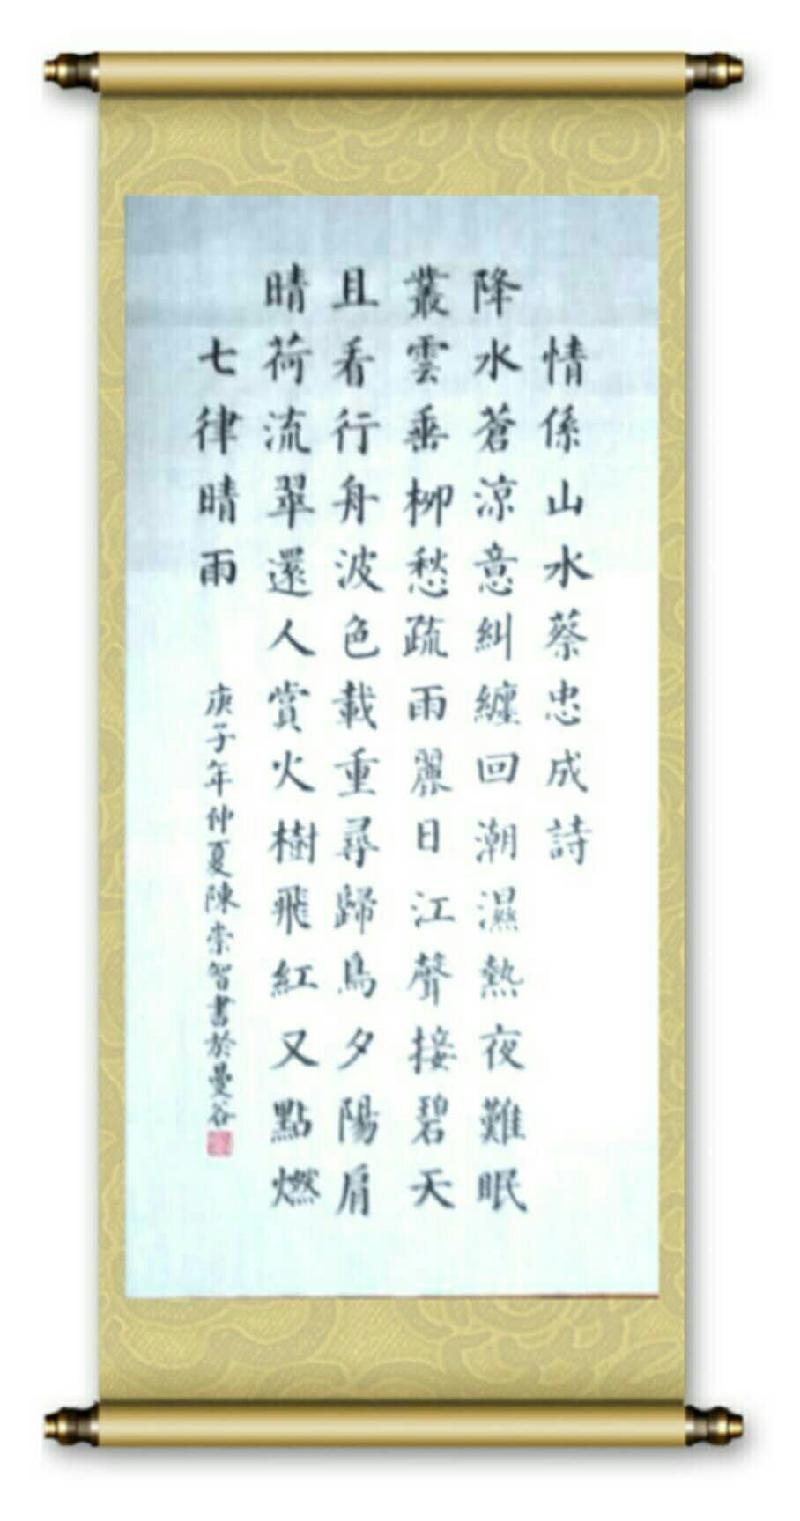 情係山水蔡忠成詩
降水蒼涼意糾纏回潮濕熱夜難眠
叢雲垂柳愁疏雨麗日江聲接碧天
且看行舟波色載重尋歸鳥夕陽肩
晴荷流翠還人賞火樹飛紅又點燃
七律晴雨
庚子年仲夏陳崇智書於曼谷